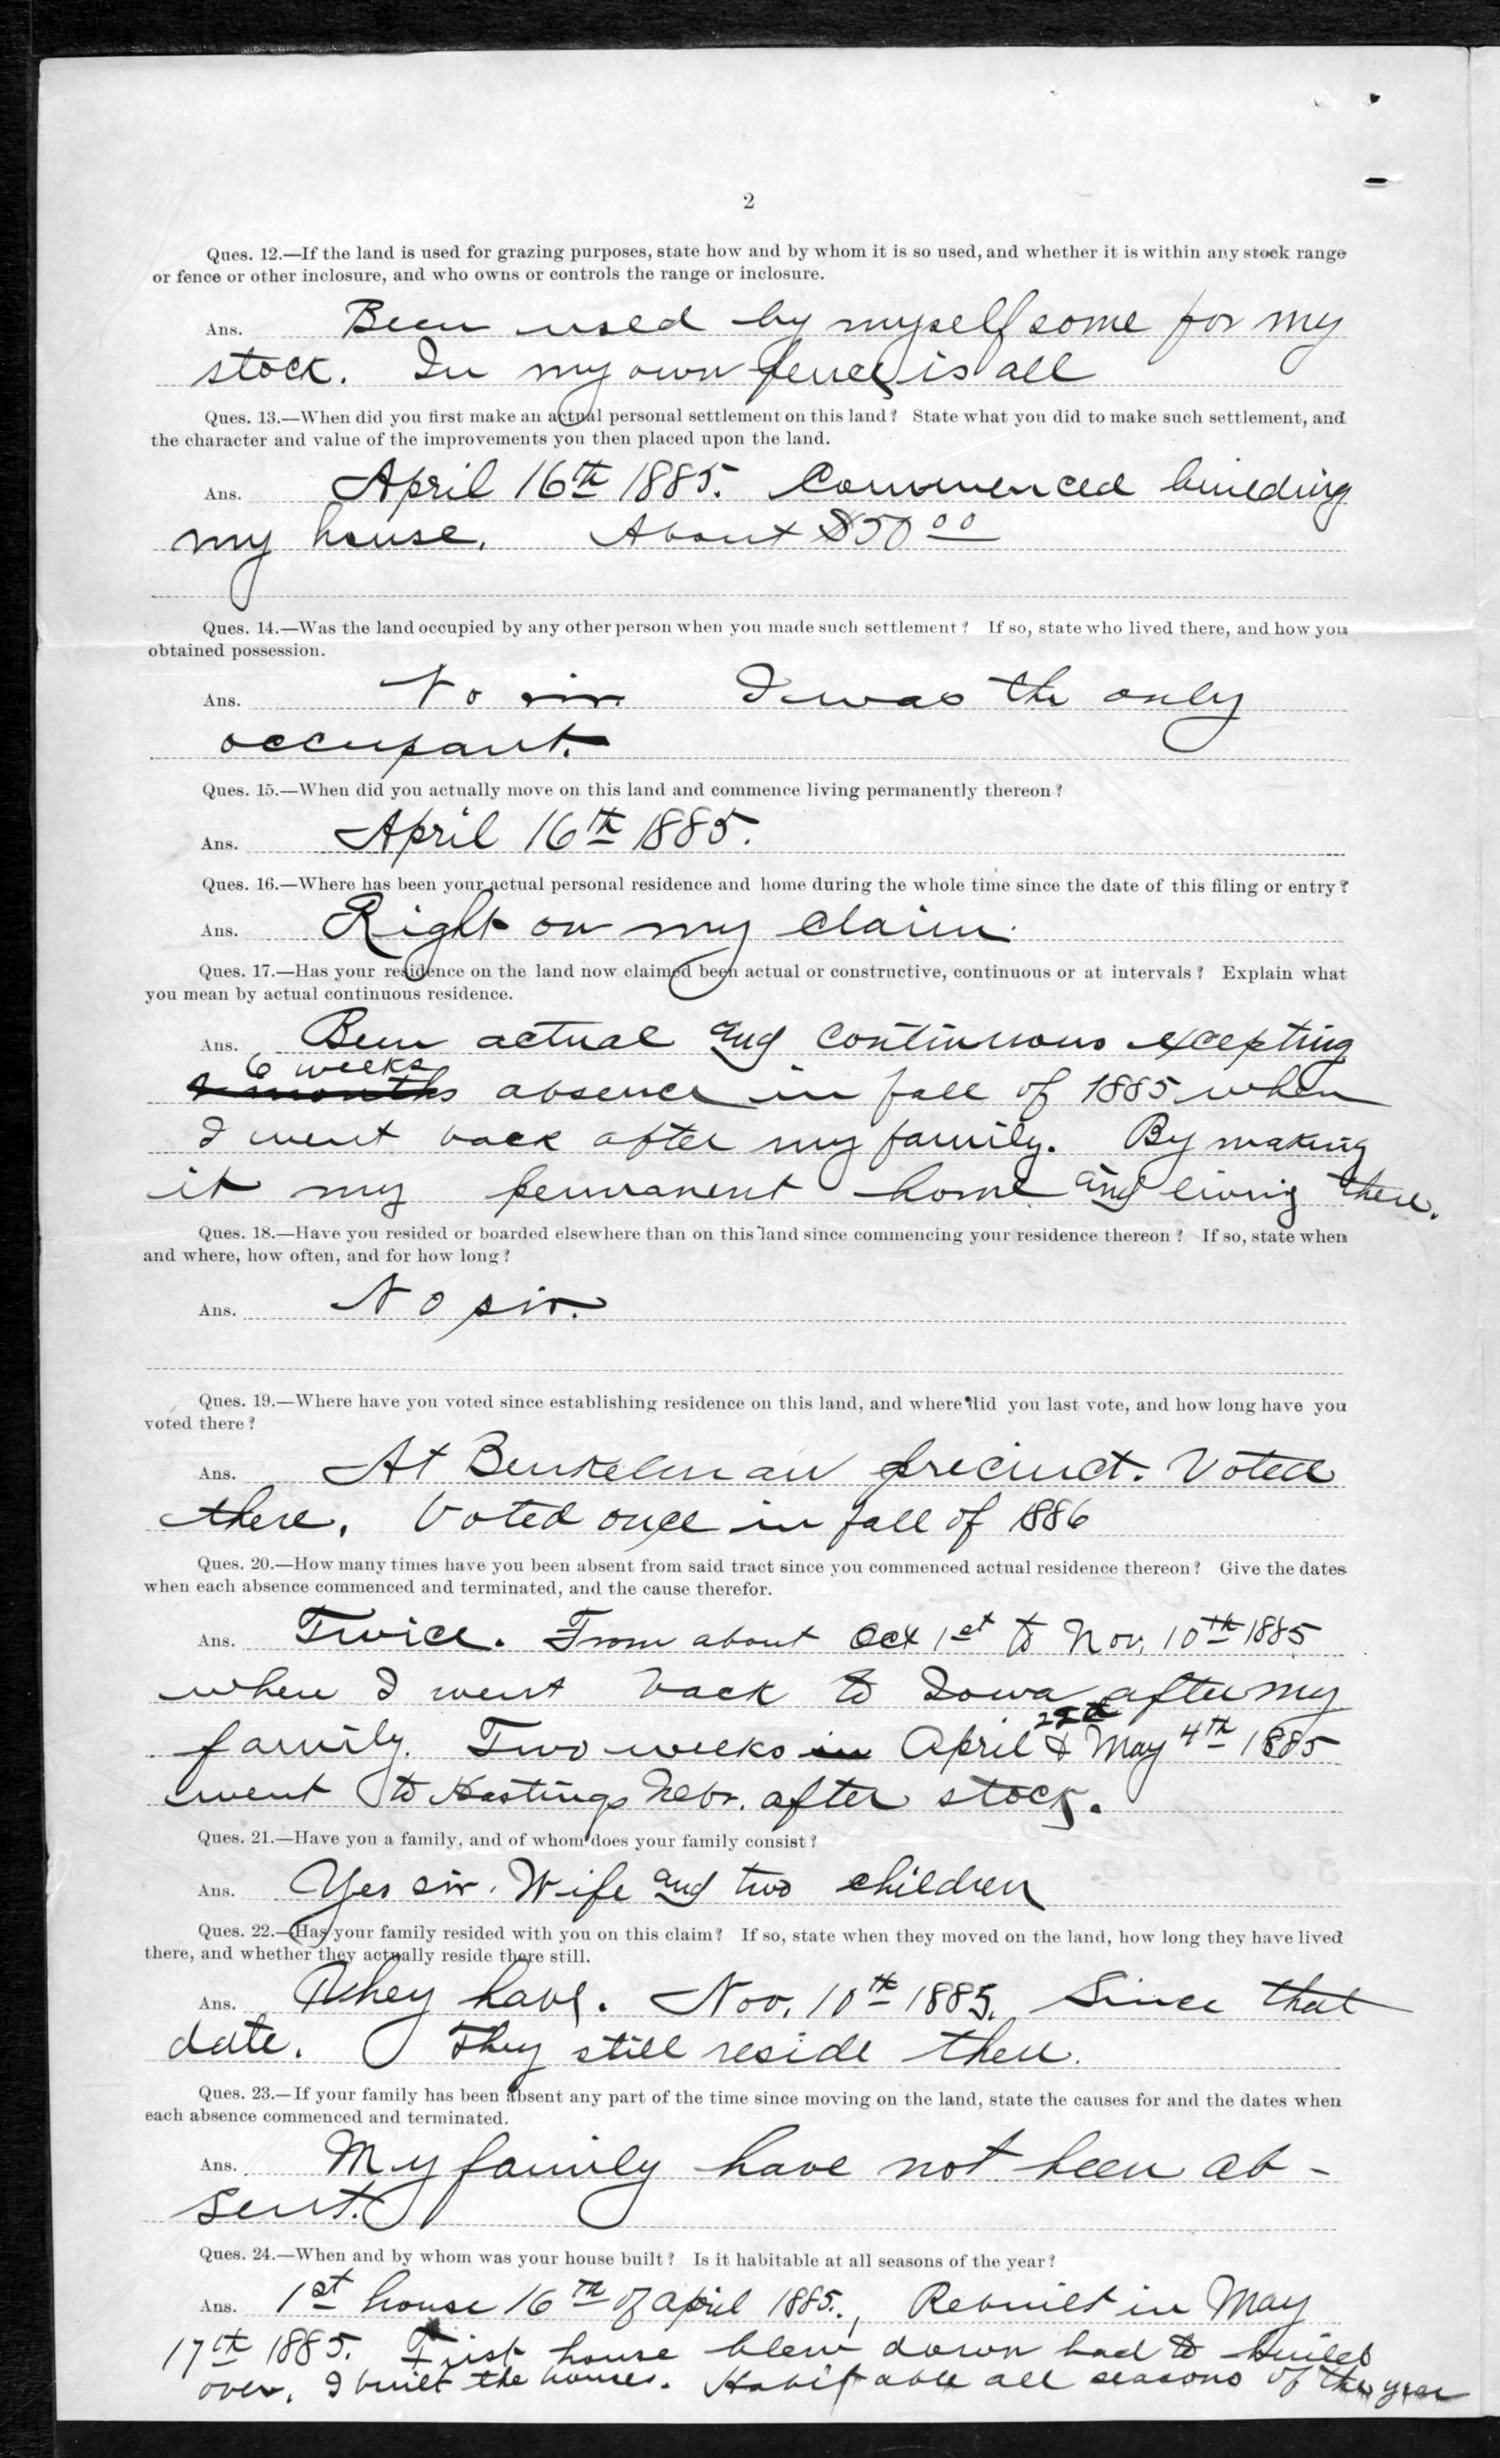 2
Ques. 12.—If the land is used for grazing purposes, state how and by whom it is so used, and whether it is within any stock range
or fence or other inclosure, and who owns or controls the range or inclosure.
Ans. Been used by myself some for my
stock. In my own fence is all
Ques. 13.—When did you first make an actual personal settlement on this land? State what you did to make such settlement, and
the character and value of the improvements you then placed upon the land.
Ans. April 16th 1885. Commenced building
my house. About $50 00
Ques. 14.—Was the land occupied by any other person when you made such settlement? If so, state who lived there, and how you
obtained possession.
Ans. No sir I was the only
occupant.
Ques. 15.—When did you actually move on this land and commence living permanently thereon?
Ans. April 16th 1885.
Ques. 16.—Where has been your actual personal residence and home during the whole time since the date of this filing or entry?
Ans. Right on my claim.
Ques. 17.—Has your residence on the land now claimed been actual or constructive, continuous or at intervals? Explain what
you mean by actual continuous residence.
Ans. Been actual and continuous excepting
6 weeks
months absence in fall of 1885 when
I went back after my family. By making
it my permanent home and living there.
Ques. 18.—Have you resided or boarded elsewhere than on this land since commencing your residence thereon? If so, state when
and where, how often, and for how long?
Ans. No sir.
Ques. 19.—Where have you voted since establishing residence on this land, and where did you last vote, and how long have you
voted there?
Ans. At Benkelman precinct. Voted
there. Voted once in fall of 1886
Ques. 20.—How many times have you been absent from said tract since you commenced actual residence thereon? Give the dates
when each absence commenced and terminated, and the cause therefor.
Ans. Twice. From about Oct 1st to Nov. 10th 1885
when I went back to Iowa after my
family. Two weeks in April & May 4th 1885
went to Hastings Nebr. after stock.
Ques. 21.—Have you a family, and of whom does your family consist?
Ans. Yes sir. Wife and two children
Ques. 22.—Has your family resided with you on this claim? If so, state when they moved on the land, how long they have lived
there, and whether they actually reside there still.
Ans. They have. Nov. 10th 1885. Since that
date. They still reside there.
Ques. 23.—If your family has been absent any part of the time since moving on the land, state the causes for and the dates when
each absence commenced and terminated.
Ans. My family have not been ab-
sent.
Ques. 24.—When and by whom was your house built? Is it habitable at all seasons of the year?
Ans. 1st house 16th of april 1885., Rebuilt in May
17th 1885. First house blew down had to build
over. I built the houses. Habitable all seasons of the year